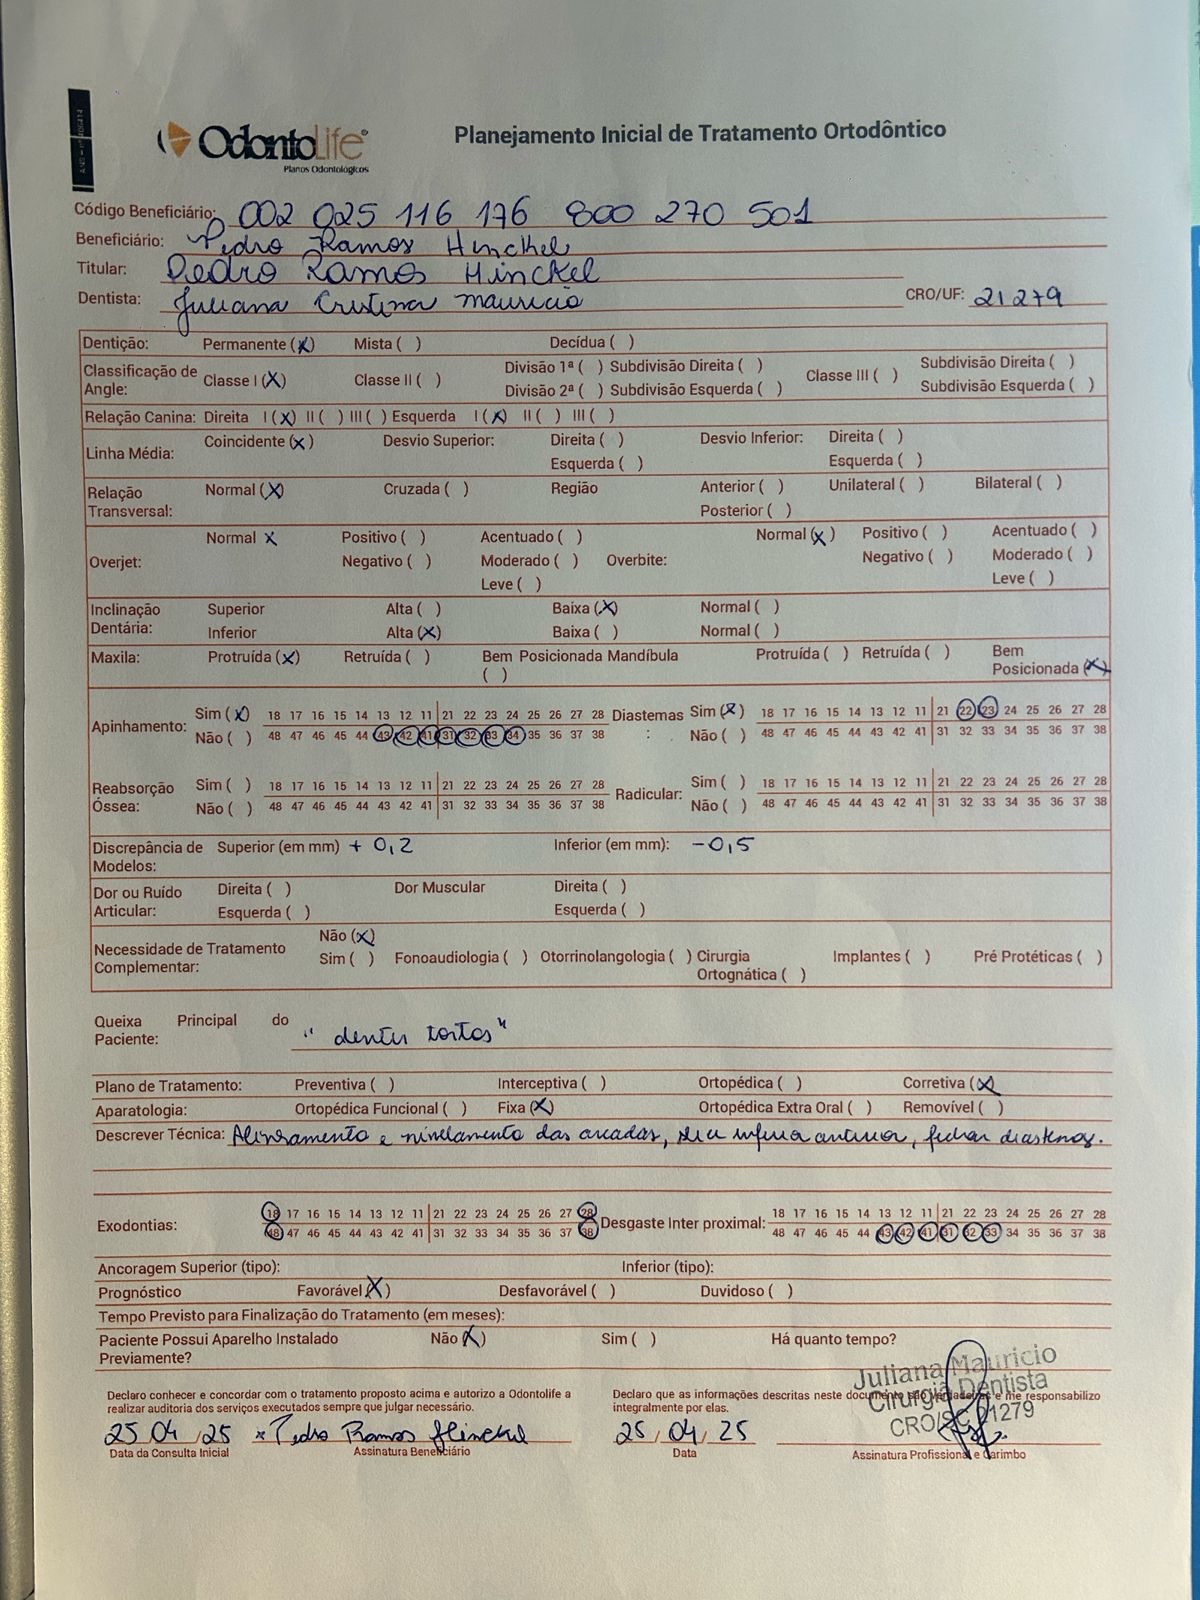 ANS - nº 406414
OdontoLife®
Planos Odontológicos
Planejamento Inicial de Tratamento Ortodôntico
Código Beneficiário: 002 025 116 176 800 270 501
Beneficiário: Pedro Ramos Hinckel
Titular: Pedro Ramos Hinckel
Dentista: Juliana Cristina Mauricio CRO/UF: 21279
Dentição: Permanente (X) Mista ( ) Decídua ( )
Classificação de Angle: Classe I (X) Classe II ( ) Divisão 1ª ( ) Subdivisão Direita ( ) Classe III ( ) Subdivisão Direita ( )
Divisão 2ª ( ) Subdivisão Esquerda ( ) Subdivisão Esquerda ( )
Relação Canina: Direita I (X) II ( ) III ( ) Esquerda I (X) II ( ) III ( )
Linha Média: Coincidente (X) Desvio Superior: Direita ( ) Desvio Inferior: Direita ( )
Esquerda ( ) Esquerda ( )
Relação Transversal: Normal (X) Cruzada ( ) Região Anterior ( ) Unilateral ( ) Bilateral ( )
Posterior ( )
Overjet: Normal X Positivo ( ) Acentuado ( ) Overbite: Normal (X) Positivo ( ) Acentuado ( )
Negativo ( ) Moderado ( ) Negativo ( ) Moderado ( )
Leve ( ) Leve ( )
Inclinação Dentária: Superior Alta ( ) Baixa (X) Normal ( )
Inferior Alta (X) Baixa ( ) Normal ( )
Maxila: Protruída (X) Retruída ( ) Bem Posicionada ( ) Mandíbula Protruída ( ) Retruída ( ) Bem Posicionada (X)
Apinhamento: Sim (X) 18 17 16 15 14 13 12 11 21 22 23 24 25 26 27 28 Diastemas: Sim (X) 18 17 16 15 14 13 12 11 21 22 23 24 25 26 27 28
Não ( ) 48 47 46 45 44 43 42 41 31 32 33 34 35 36 37 38 Não ( ) 48 47 46 45 44 43 42 41 31 32 33 34 35 36 37 38
Reabsorção Óssea: Sim ( ) 18 17 16 15 14 13 12 11 21 22 23 24 25 26 27 28 Radicular: Sim ( ) 18 17 16 15 14 13 12 11 21 22 23 24 25 26 27 28
Não ( ) 48 47 46 45 44 43 42 41 31 32 33 34 35 36 37 38 Não ( ) 48 47 46 45 44 43 42 41 31 32 33 34 35 36 37 38
Discrepância de Modelos: Superior (em mm) + 0,2 Inferior (em mm): -0,5
Dor ou Ruído Articular: Direita ( ) Dor Muscular Direita ( )
Esquerda ( ) Esquerda ( )
Necessidade de Tratamento Complementar: Não (X)
Sim ( ) Fonoaudiologia ( ) Otorrinolangologia ( ) Cirurgia Ortognática ( ) Implantes ( ) Pré Protéticas ( )
Queixa Principal do Paciente: "dentes tortos"
Plano de Tratamento: Preventiva ( ) Interceptiva ( ) Ortopédica ( ) Corretiva (X)
Aparatologia: Ortopédica Funcional ( ) Fixa (X) Ortopédica Extra Oral ( ) Removível ( )
Descrever Técnica: Alinhamento e nivelamento das arcadas, inferior anterior, fechar diastemas.
Exodontias: 18 17 16 15 14 13 12 11 21 22 23 24 25 26 27 28 Desgaste Inter proximal: 18 17 16 15 14 13 12 11 21 22 23 24 25 26 27 28
48 47 46 45 44 43 42 41 31 32 33 34 35 36 37 38 48 47 46 45 44 43 42 41 31 32 33 34 35 36 37 38
Ancoragem Superior (tipo): Inferior (tipo):
Prognóstico Favorável (X) Desfavorável ( ) Duvidoso ( )
Tempo Previsto para Finalização do Tratamento (em meses):
Paciente Possui Aparelho Instalado Previamente? Não (X) Sim ( ) Há quanto tempo?
Declaro conhecer e concordar com o tratamento proposto acima e autorizo a Odontolife a
realizar auditoria dos serviços executados sempre que julgar necessário.
Declaro que as informações descritas neste documento são verdadeiras e me responsabilizo
integralmente por elas.
Juliana Mauricio
Cirurgiã Dentista
CRO/SC 21279
25 04 / 25 x Pedro Ramos Hinckel 25 / 04 / 25
Data da Consulta Inicial Assinatura Beneficiário Data Assinatura Profissional e Carimbo